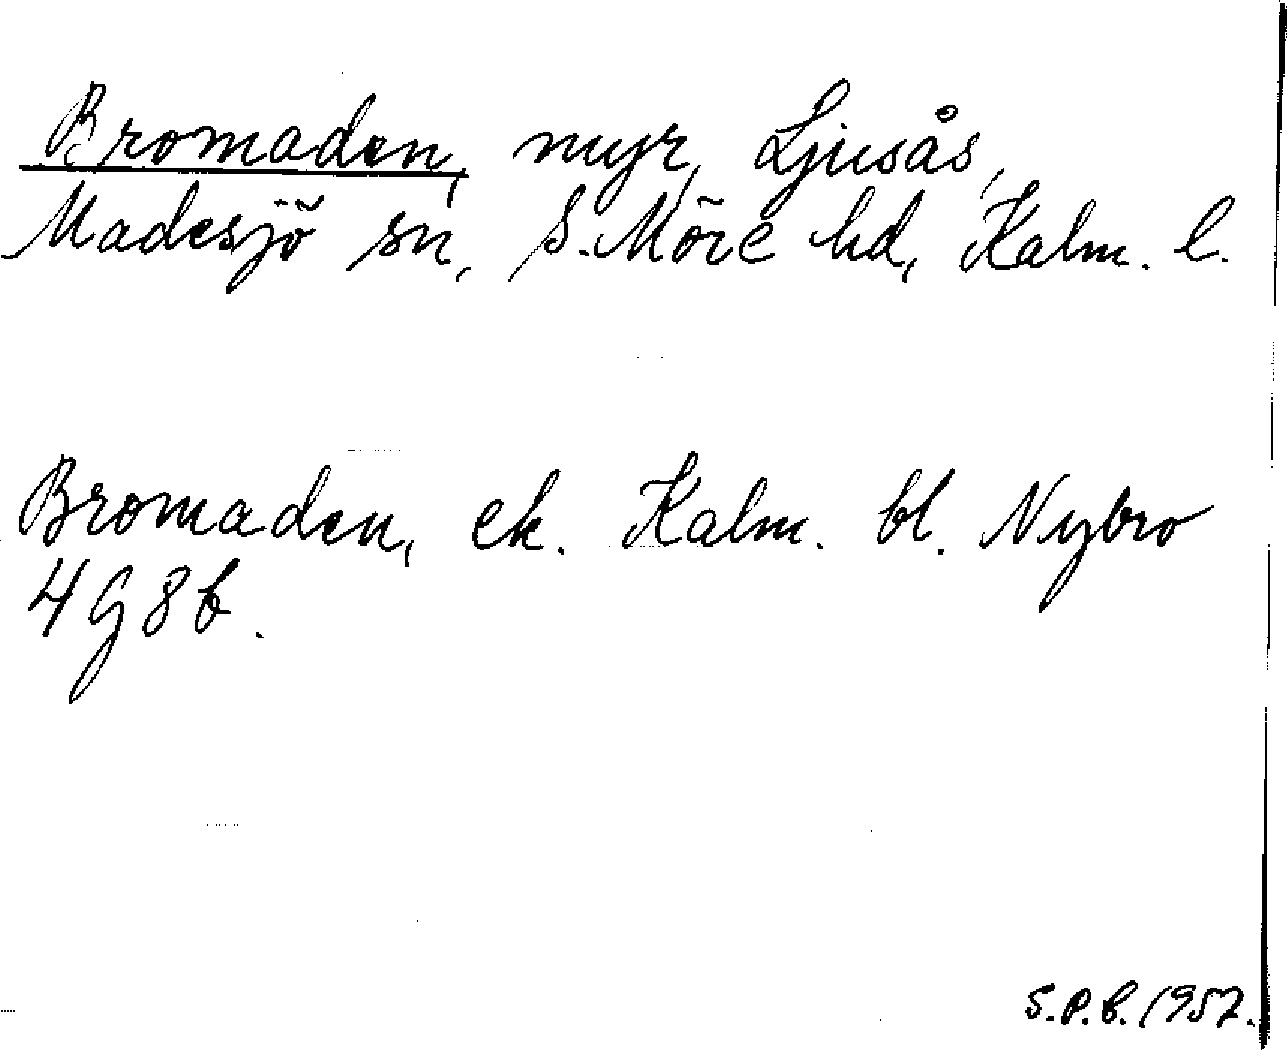 Bromaden, myr, Ljusås,
Madesjö sn, S. Möre hd, Kalm. l.
Bromaden, ek. Kalm. bl. Nybro
4G8b.
S.P.B. 1957.